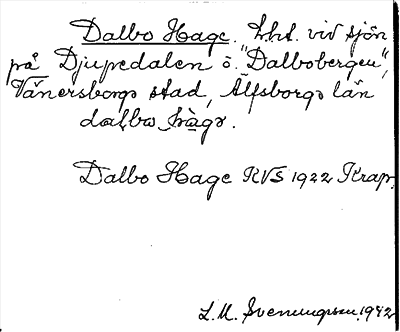 Dalbo Hage. Lht. vid sjön
på Djupedalen ö. "Dalbobergen",
Vänersborgs stad, Älfsborgs län
dalbo hage.
Dalbo Hage RVS 1922 Krap.
L. M. Svenungsson 1942